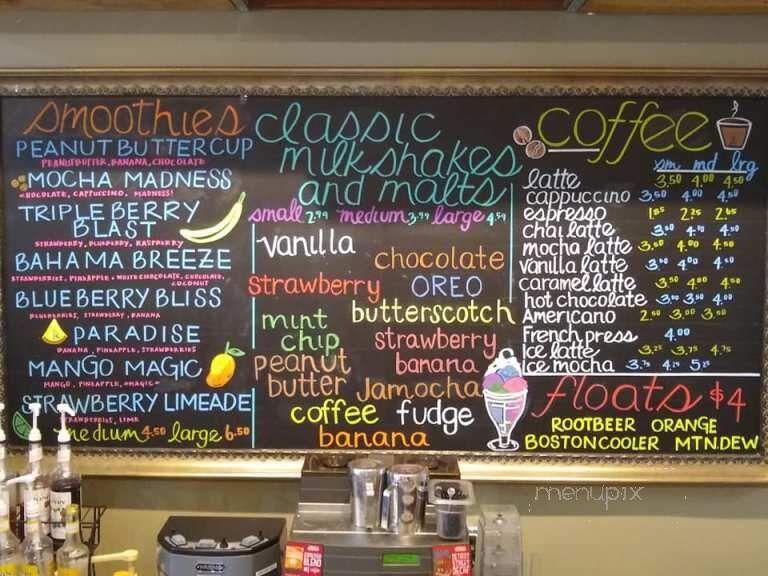 smoothies
PEANUT BUTTER CUP
PEANUT BUTTER, BANANA, CHOCOLATE
MOCHA MADNESS
CHOCOLATE, CAPPUCCINO, MADNESS!
TRIPLE BERRY
BLAST
STRAWBERRY, BLUEBERRY, RASPBERRY
BAHAMA BREEZE
STRAWBERRIES, PINEAPPLE, WHITE CHOCOLATE, CHOCOLATE,
COCONUT
BLUEBERRY BLISS
BLUEBERRIES, STRAWBERRY, BANANA
PARADISE
BANANA, PINEAPPLE, STRAWBERRIES
MANGO MAGIC
MANGO, PINEAPPLE, *MAGIC*
STRAWBERRY LIMEADE
STRAWBERRIES, LIME
medium 4.50 large 6.50
classic
milkshakes
and malts
small 2.99 medium 3.99 large 4.59
vanilla
chocolate
strawberry OREO
butterscotch
mint
chip
strawberry
banana
peanut
butter
Jamocha
coffee fudge
banana
coffee
sm md lrg
latte 3.50 4.00 4.50
cappuccino 3.50 4.00 4.50
espresso 1.85 2.25 2.65
chai latte 3.50 4.00 4.50
mocha latte 3.50 4.00 4.50
vanilla latte 3.50 4.00 4.50
caramel latte 3.50 4.00 4.50
hot chocolate 3.00 3.50 4.00
Americano 2.50 3.00 3.50
French press 4.00
Ice latte 3.25 3.75 4.75
Ice mocha 3.75 4.75 5.25
floats $4
ROOTBEER ORANGE
BOSTON COOLER MTN. DEW
menupix